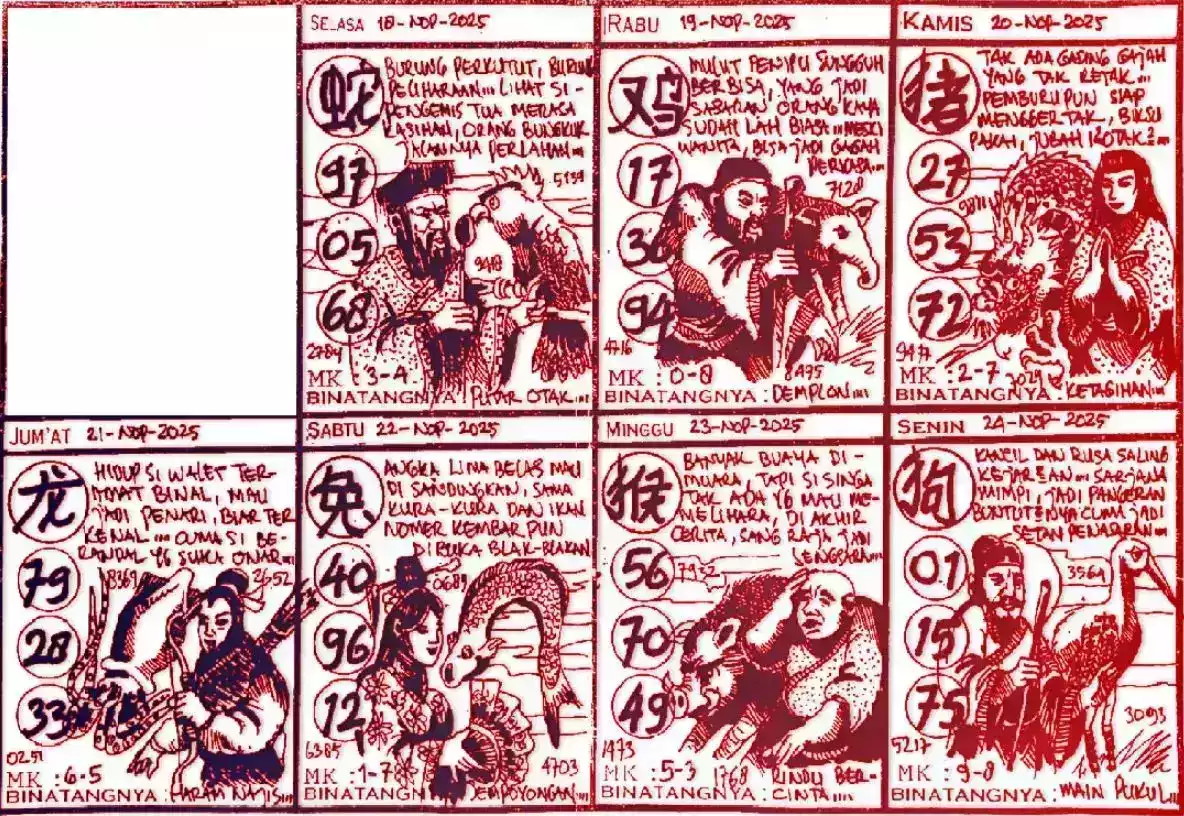 SELASA 18-NOP-2025
蛇
BURUNG PERKUTUT, BURUNG
PELIHARAAN... LIHAT SI-
PENGEMIS TUA MERASA
KASIHAN, ORANG BUNGKUK
JALANNYA PERLAHAN...
5139
97
05
68
9410
2784
MK : 3-4
BINATANGNYA : PUTAR OTAK...
RABU 19-NOP-2025
鸡
MULUT PENIPU SUNGGUH
BERBISA, YANG JADI
SASARAN ORANG KAYA
SUDAH LAH BIASA... MESKI
WANITA, BISA JADI GAGAH
PERKASA...
7128
17
36
94
4716
8495
MK : 0-8
BINATANGNYA : DEMPLON...
KAMIS 20-NOP-2025
猪
TAK ADA GADING GAJAH
YANG TAK RETAK...
PEMBURU PUN SIAP
MENGGERTAK, BIKSU
PAKAI, JUBAH KOTAK²...
27
53
72
MK : 2-7
BINATANGNYA : KETAGIHAN...
JUM'AT 21-NOP-2025
龙
HIDUP SI WALET TER-
AMAT BINAL, MAU
JADI PENARI, BIAR TER
KENAL... CUMA SI BE-
RANDAL YG SUKA ONAR...
8369
2652
79
28
33
0251
MK : 6-5
BINATANGNYA : HARAM NAJIS...
SABTU 22-NOP-2025
兔
ANGKA LIMA BELAS MAU
DI SANDINGKAN, SAMA
KURA-KURA DAN IKAN
NOMER KEMBAR PUN
DIBUKA BLAK-BLAKAN
0689
40
96
12
6385
4703
MK : 1-7
BINATANGNYA : SEMPOYONGAN...
MINGGU 23-NOP-2025
猴
BANYAK BUAYA DI-
MUARA, TAPI SI SINGA
TAK ADA YG MAU ME-
MELIHARA, DI AKHIR
CERITA, SANG RAJA JADI
SENGSARA...
7932
56
70
49
1473
1768
MK : 5-3
BINATANGNYA : RINDU BER-
CINTA...
SENIN 24-NOP-2025
狗
KANCIL DAN RUSA SALING
KEJAR²AN... SARJANA
MIMPI, JADI PANGERAN
BUNTUT²NYA CUMA JADI
SETAN PENASARAN...
3564
01
15
75
3093
5217
MK : 9-8
BINATANGNYA : MAIN PUKUL...